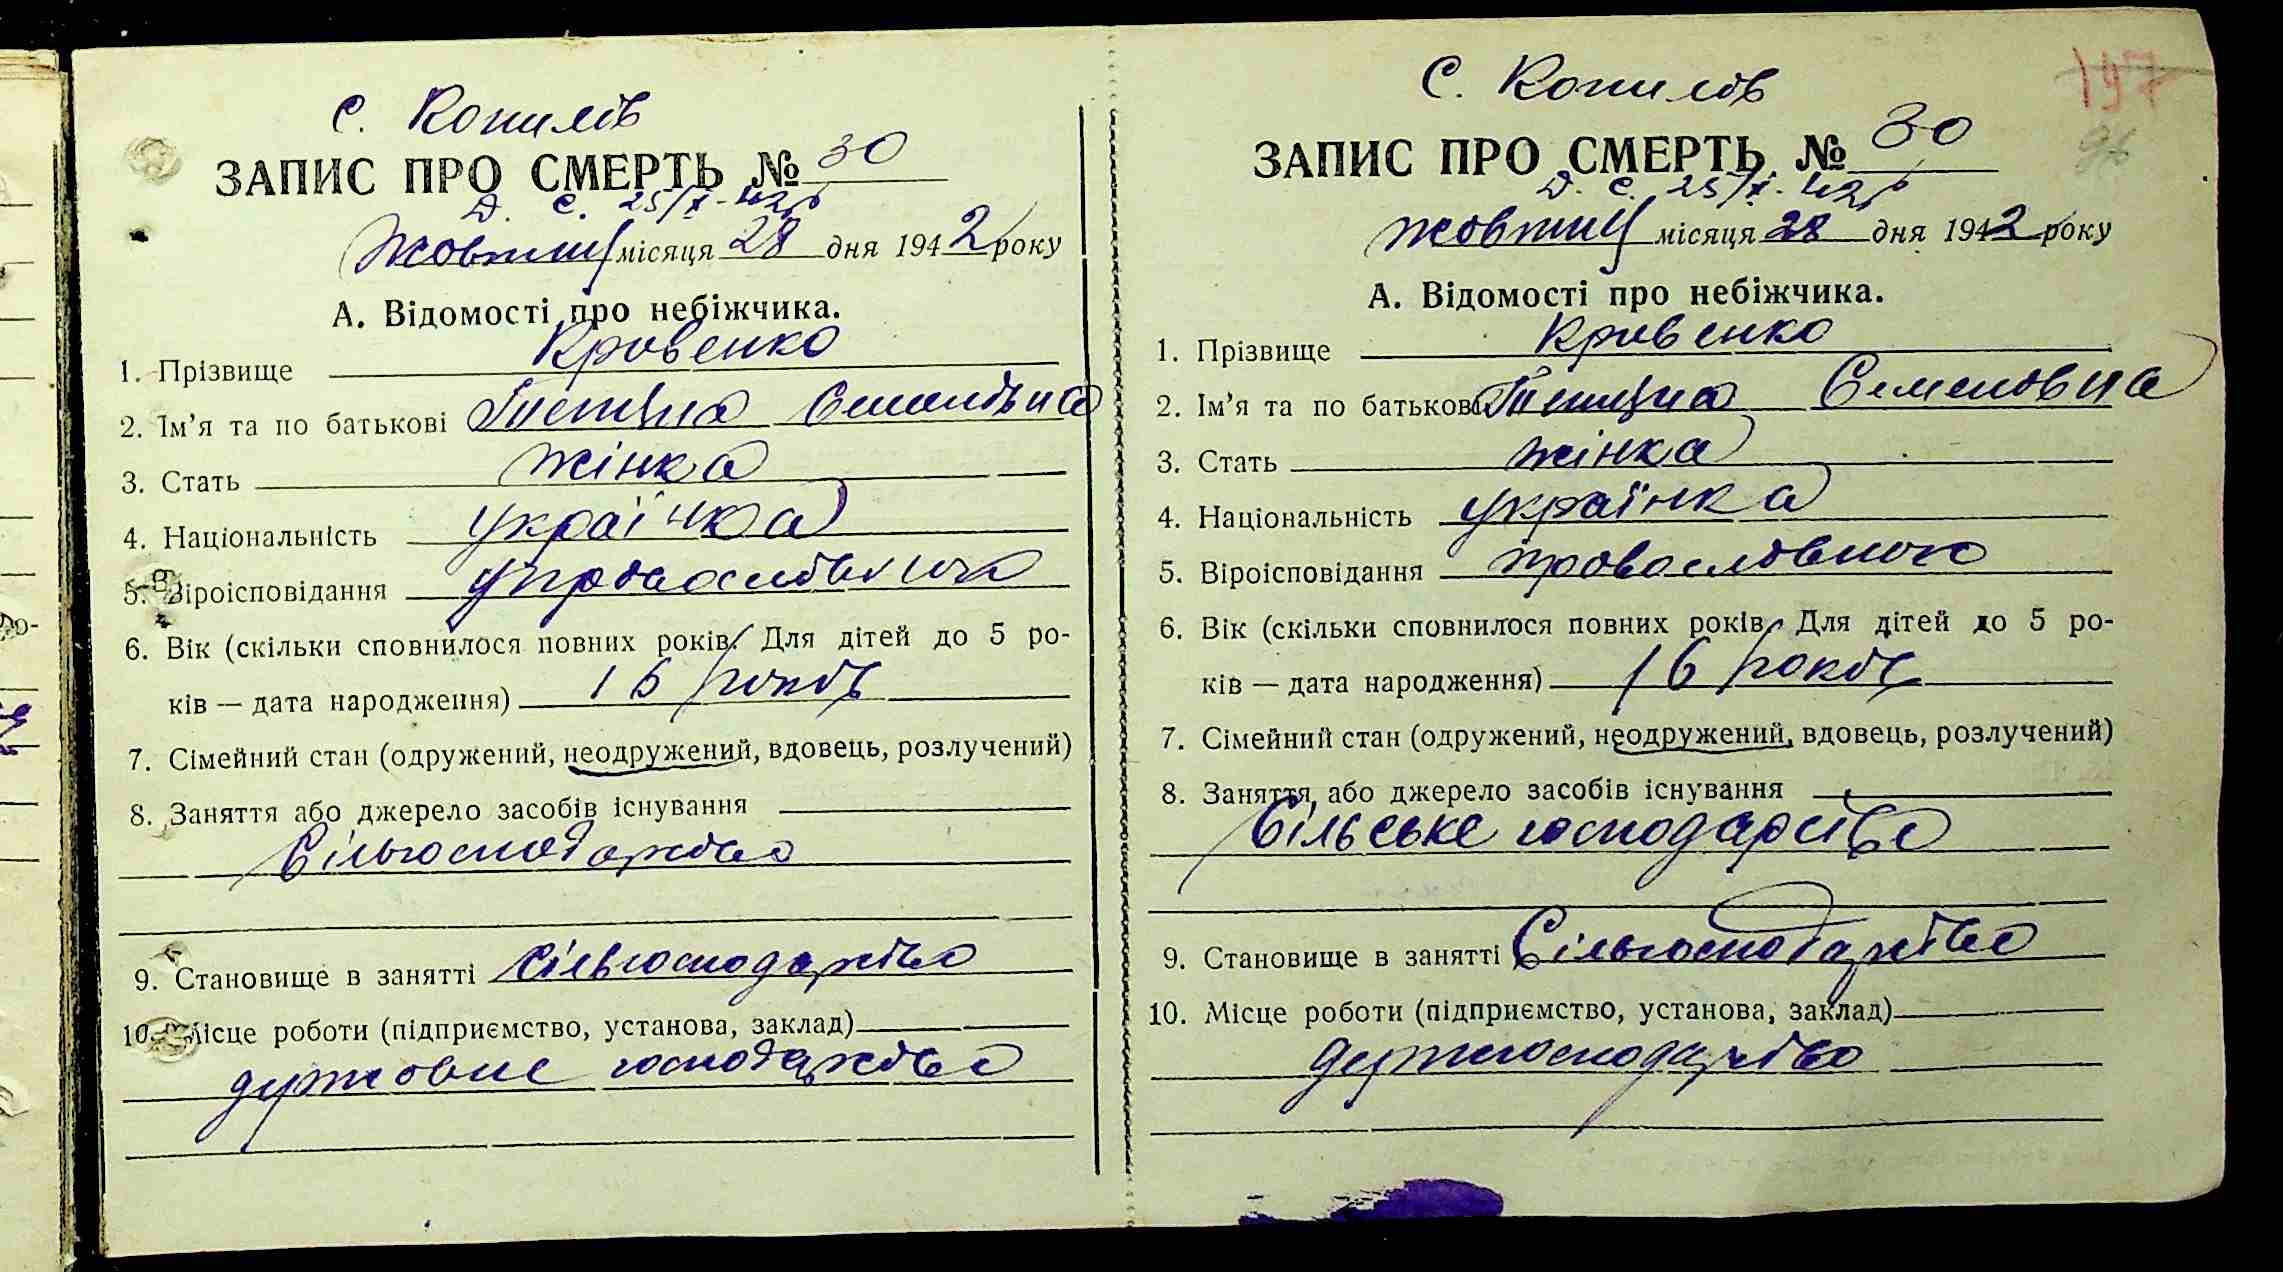 с. Копилів
ЗАПИС ПРО СМЕРТЬ № 30
Д. С. 25/X-42р
Жовтня місяця 28 дня 1942 року
А. Відомості про небіжчика.
1. Прізвище Кривенко
2. Ім’я та по батькові Семенівна
3. Стать жінка
4. Національність українка
5. Віроісповідання
6. Вік (скільки сповнилося повних років. Для дітей до 5 ро-
ків — дата народження) 16 років
7. Сімейний стан (одружений, неодружений, вдовець, розлучений)
8. Заняття або джерело засобів існування
Сільгосподарство
9. Становище в занятті Сільгосподарство
10. Місце роботи (підприємство, установа, заклад)
державне господарство
с. Копилів
197
96
ЗАПИС ПРО СМЕРТЬ № 30
Д. С. 25/X-42р
жовтня місяця 28 дня 1942 року
А. Відомості про небіжчика.
1. Прізвище Кривенко
2. Ім’я та по батькові Семеновна
3. Стать жінка
4. Національність українка
5. Віроісповідання православного
6. Вік (скільки сповнилося повних років. Для дітей до 5 ро-
ків — дата народження) 16 років
7. Сімейний стан (одружений, неодружений, вдовець, розлучений)
8. Заняття або джерело засобів існування
Сільське господарство
9. Становище в занятті Сільгосподарство
10. Місце роботи (підприємство, установа, заклад)
держгосподарство